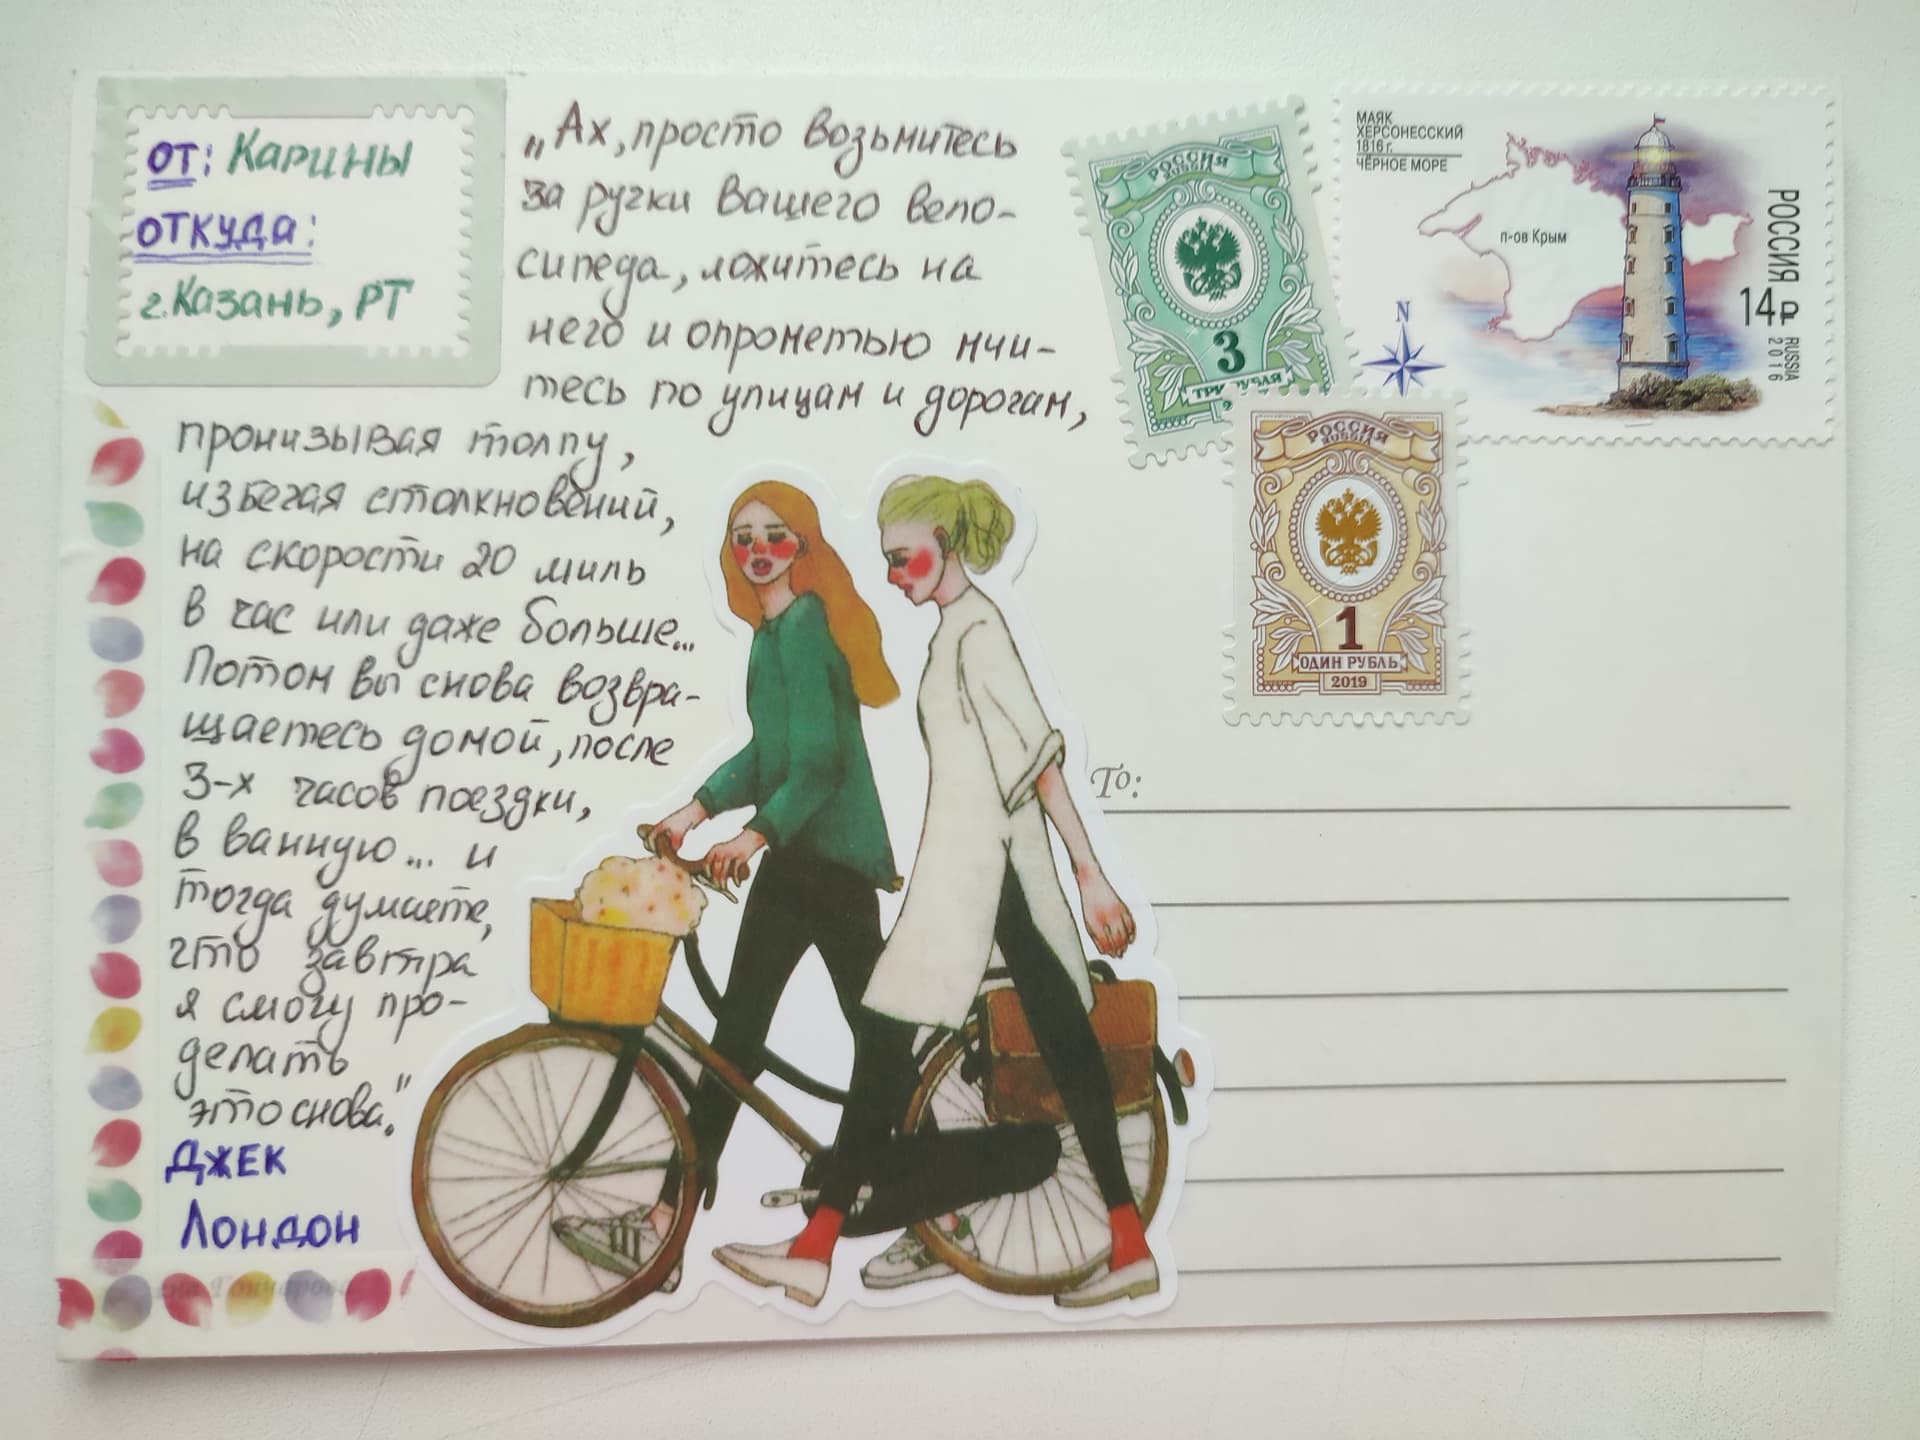 ОТ: Карины
ОТКУДА:
г.Казань, РТ
„Ах, просто возьмитесь
за ручки вашего вело-
сипеда, ложитесь на
него и опрометью мчи-
тесь по улицам и дорогам,
пронизывая толпу,
избегая столкновений,
на скорости 20 миль
в час или даже больше...
Потом вы снова возвра-
щаетесь домой, после
3-х часов поездки,
в ванную... и
тогда думаете,
что завтра
я смогу про-
делать
это снова."
ДЖЕК
ЛОНДОН
РОССИЯ
RUSSIA
3
ТРИ РУБЛЯ
МАЯК
ХЕРСОНЕССКИЙ
1816 г.
ЧЁРНОЕ МОРЕ
п-ов Крым
N
РОССИЯ
14₽
RUSSIA
2016
РОССИЯ
RUSSIA
1
ОДИН РУБЛЬ
2019
To: